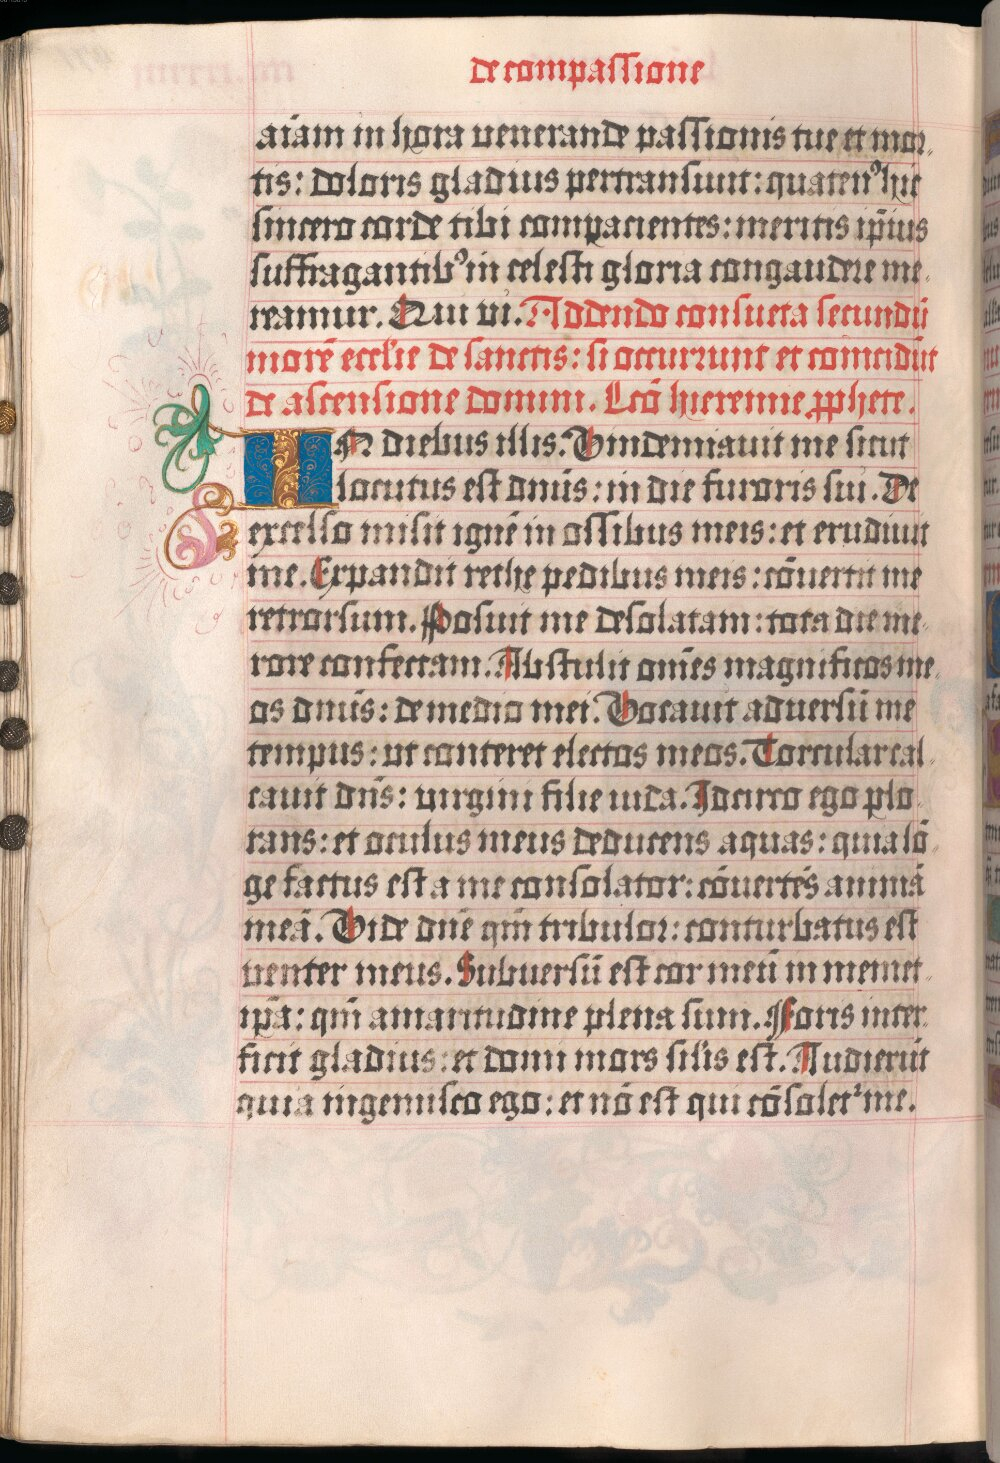 de compassione
aīam in hora venerande passionis tue et mor-
tis: doloris gladius pertransiuit: quatenꝰ hic
sincero corde tibi compacientes: meritis ip̄ius
suffragantibꝰ in celesti gloria congaudere me-
reamur. Qui vi. Addendo consueta secundū
morē eccl'ie de sanctis: si occurrunt et coincidūt
de ascensione domini. Lcō hieremie ꝓphete.
IN diebus illis. Vindemiauit me sicut
locutus est dnūs: in die furoris sui. De
excelso misit ignē in ossibus meis: et erudiuit
me. Expandit rethe pedibus meis: cōuertit me
retrorsum. Posuit me desolatam: tota die me-
rore confectam. Abstulit om̄es magnificos me-
os dnūs: de medio mei. Vocauit aduersū me
tempus: ut conteret electos meos. Torcular cal-
cauit dn̄s: virgini filie iuda. Idcirco ego plo-
rans: et oculus meus deducens aquas: quia lō-
ge factus est a me consolator: cōuertēs animā
meā. Vide dn̄e qm̄ tribulor: conturbatus est
venter meus. Subuersū est cor meū in memet-
ip̄a: qm̄ amaritudine plena sum. Foris inter-
ficit gladius: et domi mors sil'is est. Audierūt
quia ingemisco ego: et nō est qui cōsolet᷑ me.